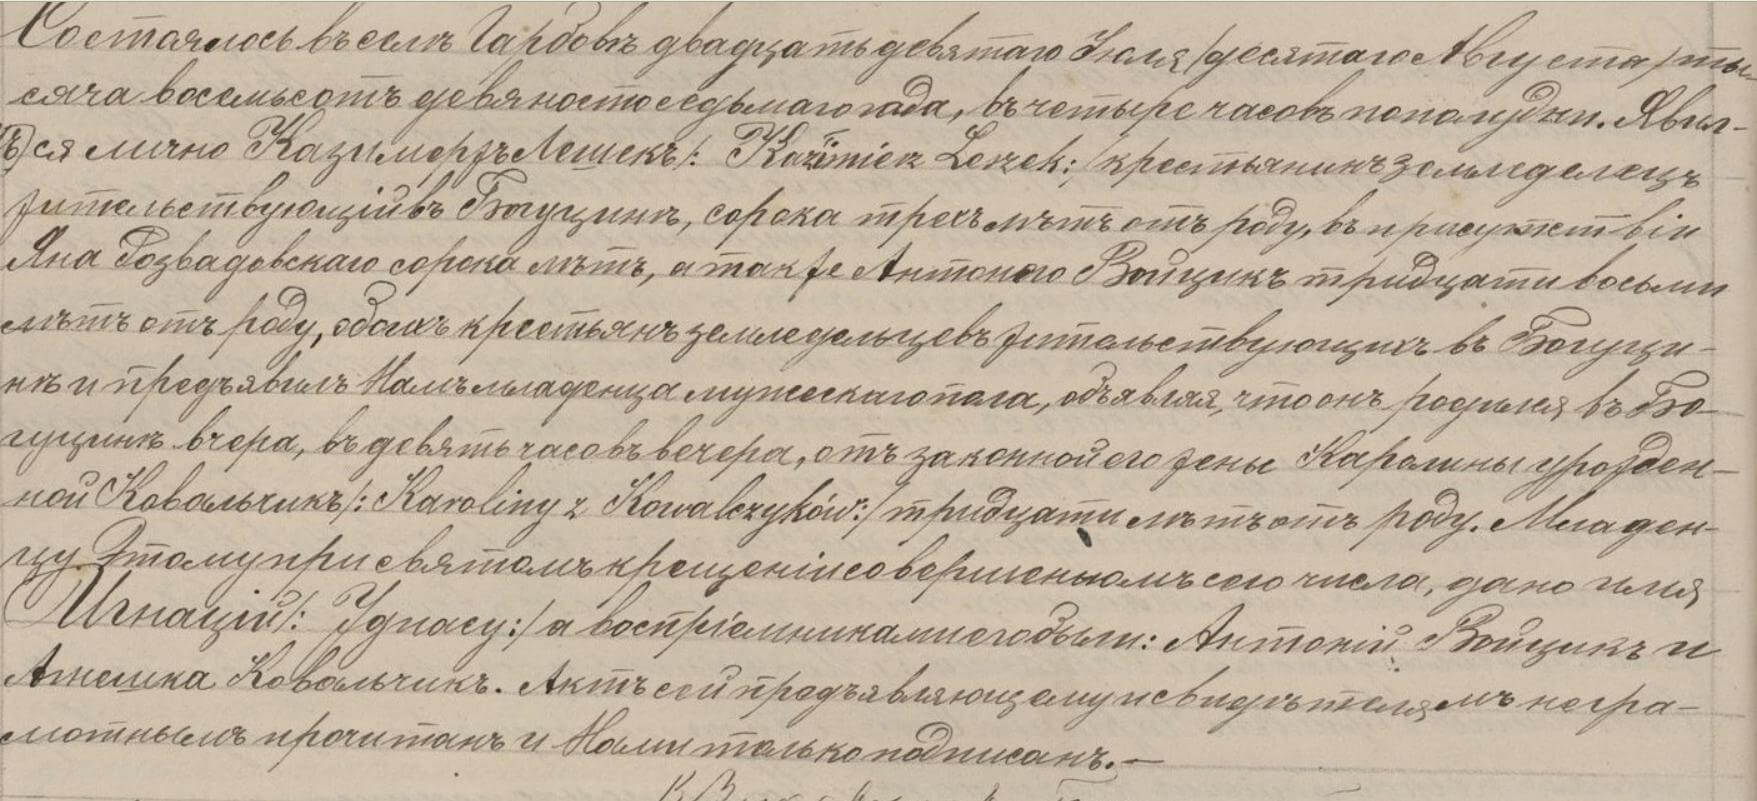 Состоялось въ селѣ Гарбовѣ двадцать девятаго Іюля /десятаго Августа/ ты-
сяча восемьсотъ девяносто седьмаго года, въ четыре часовъ пополудни. Явил-
ся лично Казимержъ Лешекъ /: Kazimierz Leszek :/ крестьянинъ земледелецъ
жительствующій въ Богуцинѣ, сорока трехъ лѣтъ отъ роду, въ присутствіи
Яна Розвадовскаго сорока лѣтъ, а также Антонаго Войцикъ тридцати восьми
лѣтъ отъ роду, обоихъ крестьянъ земледельцевъ жительствующихъ въ Богуци-
нѣ и предъявилъ Намъ младенца мужескаго пола, объявляя, что онъ родился въ Бо-
гуцинѣ вчера, въ девять часовъ вечера, отъ законной его жены Каролины урожден-
ной Ковальчикъ /: Karoliny z Kowalczyków :/ тридцати лѣтъ отъ роду. Младен-
цу Этому при святомъ крещеніи совершенномъ сего числа, дано имя
Игнацій /: Ignacy :/ а воспріемниками его были: Антоній Войцикъ и
Агнешка Ковальчикъ. Актъ сей предъявляющему и свидѣтелямъ негра-
мотнымъ прочитанъ и Нами только подписанъ. —